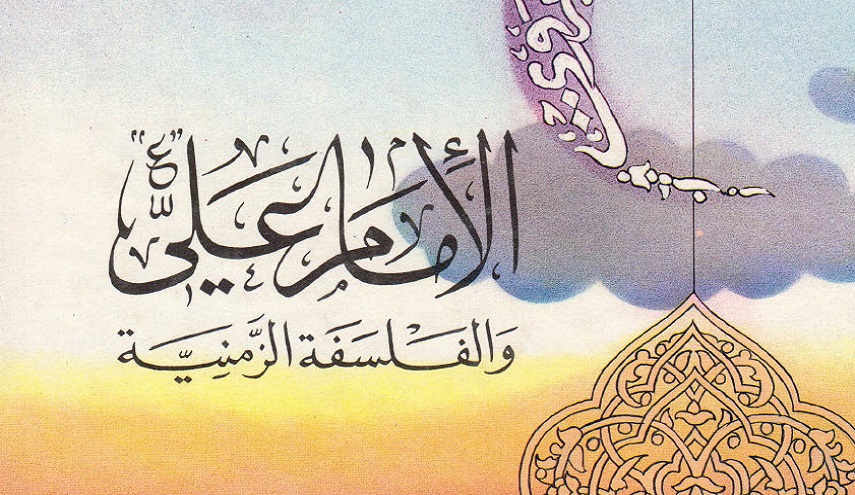 الإمام عليّ "ع"
والفلسفة الزمنية